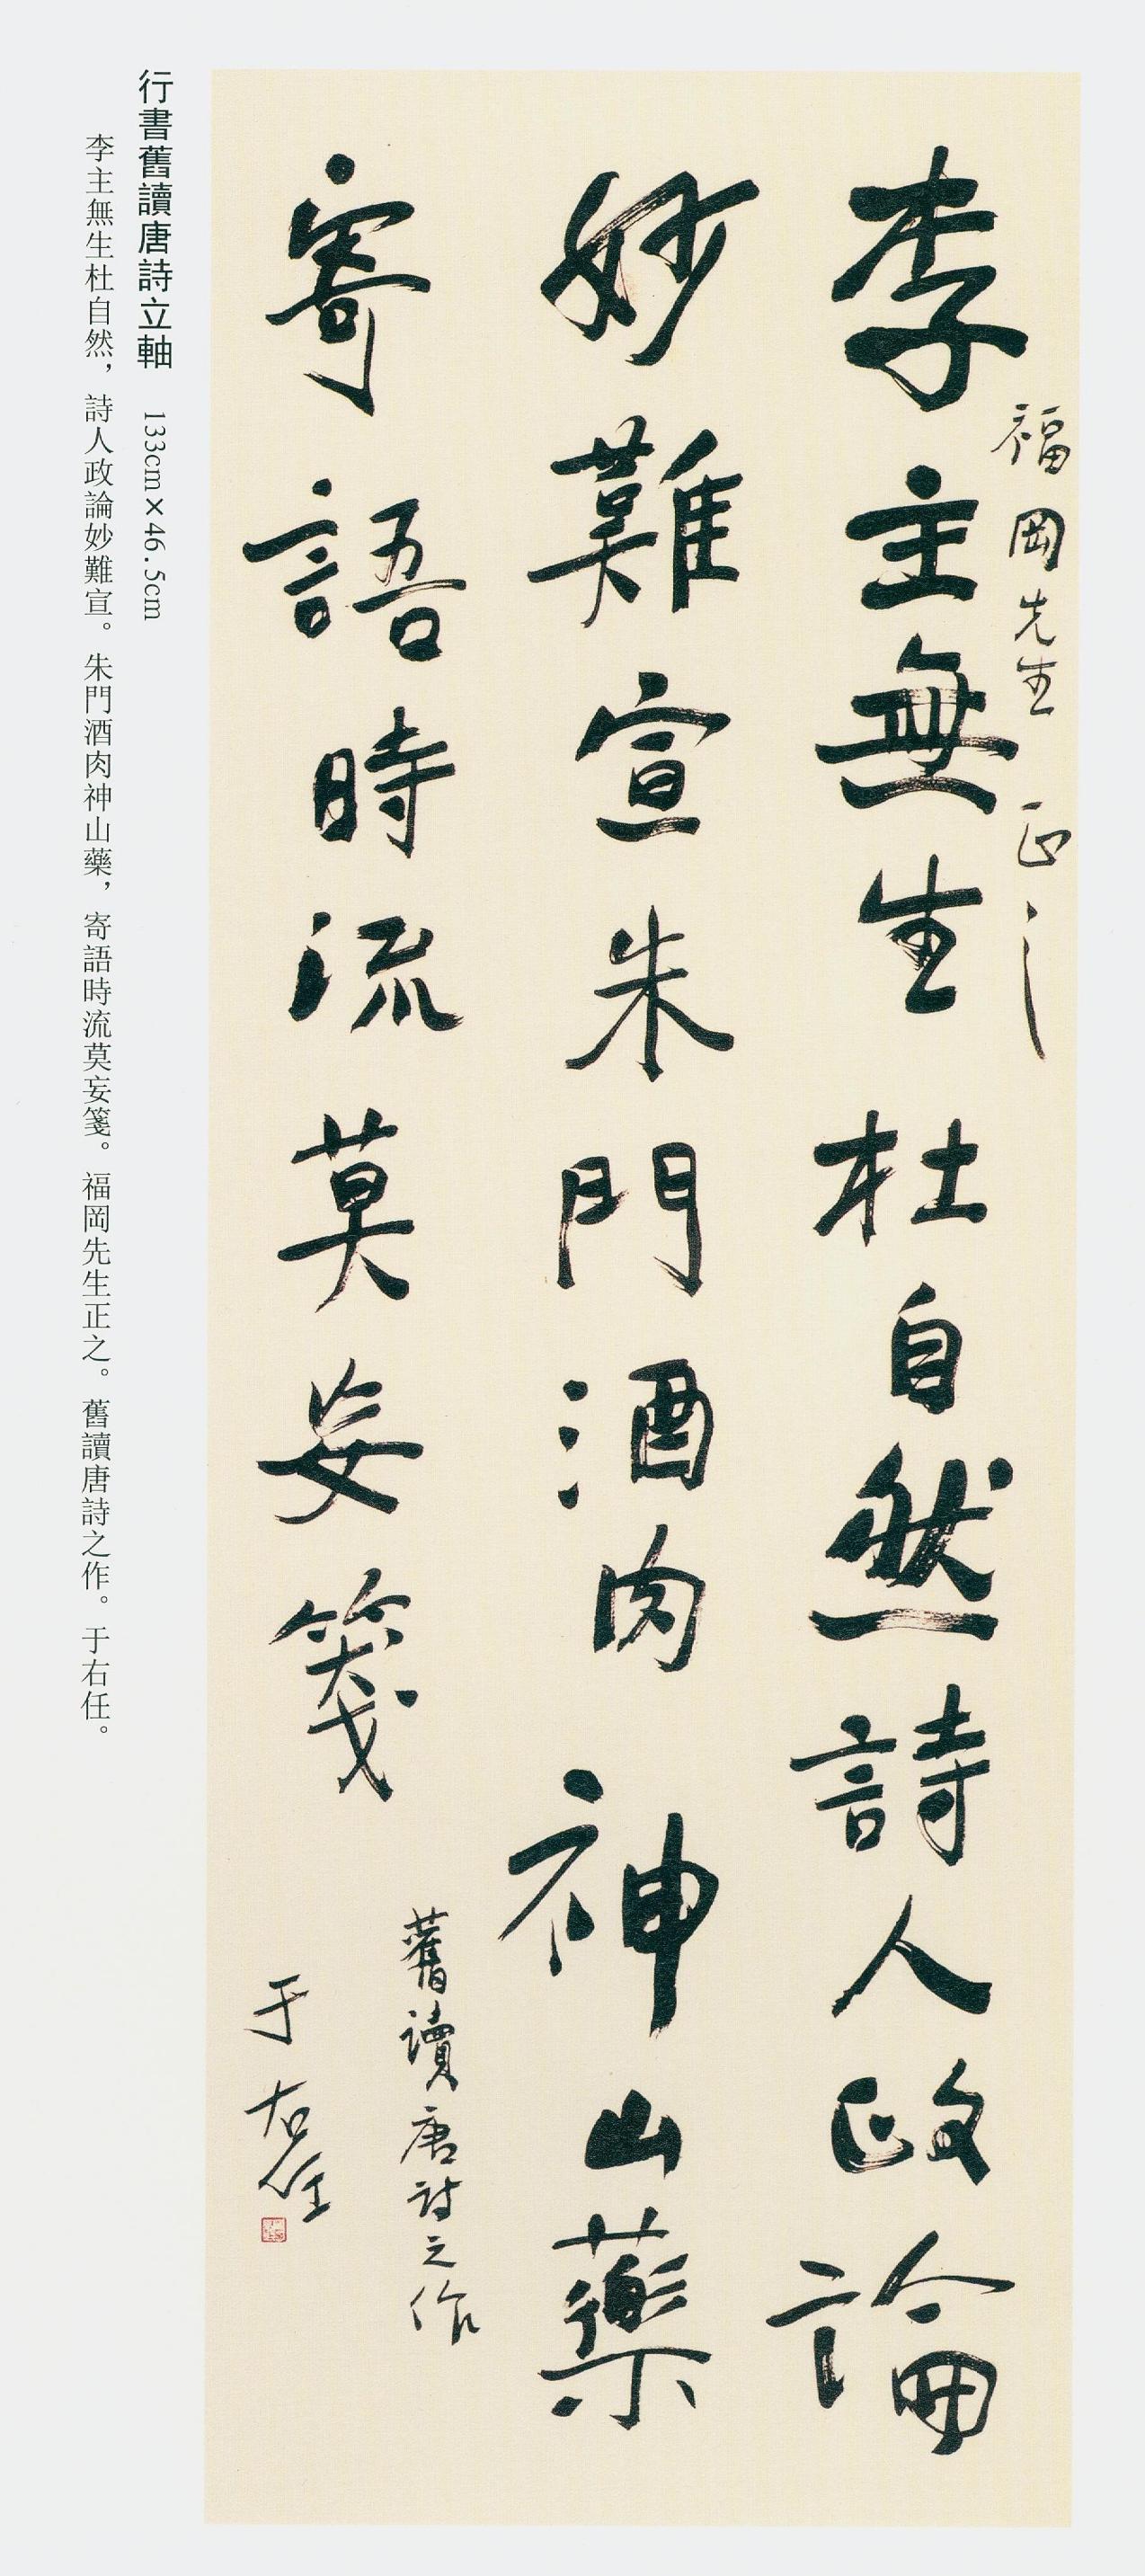 福岡先生正之
李主無生杜自然詩人政論
妙難宣朱門酒肉神山藥
寄語時流莫妄箋
舊讀唐詩之作
于右任
行書舊讀唐詩立軸 133cm×46.5cm
李主無生杜自然，詩人政論妙難宣。朱門酒肉神山藥，寄語時流莫妄箋。福岡先生正之。舊讀唐詩之作。于右任。